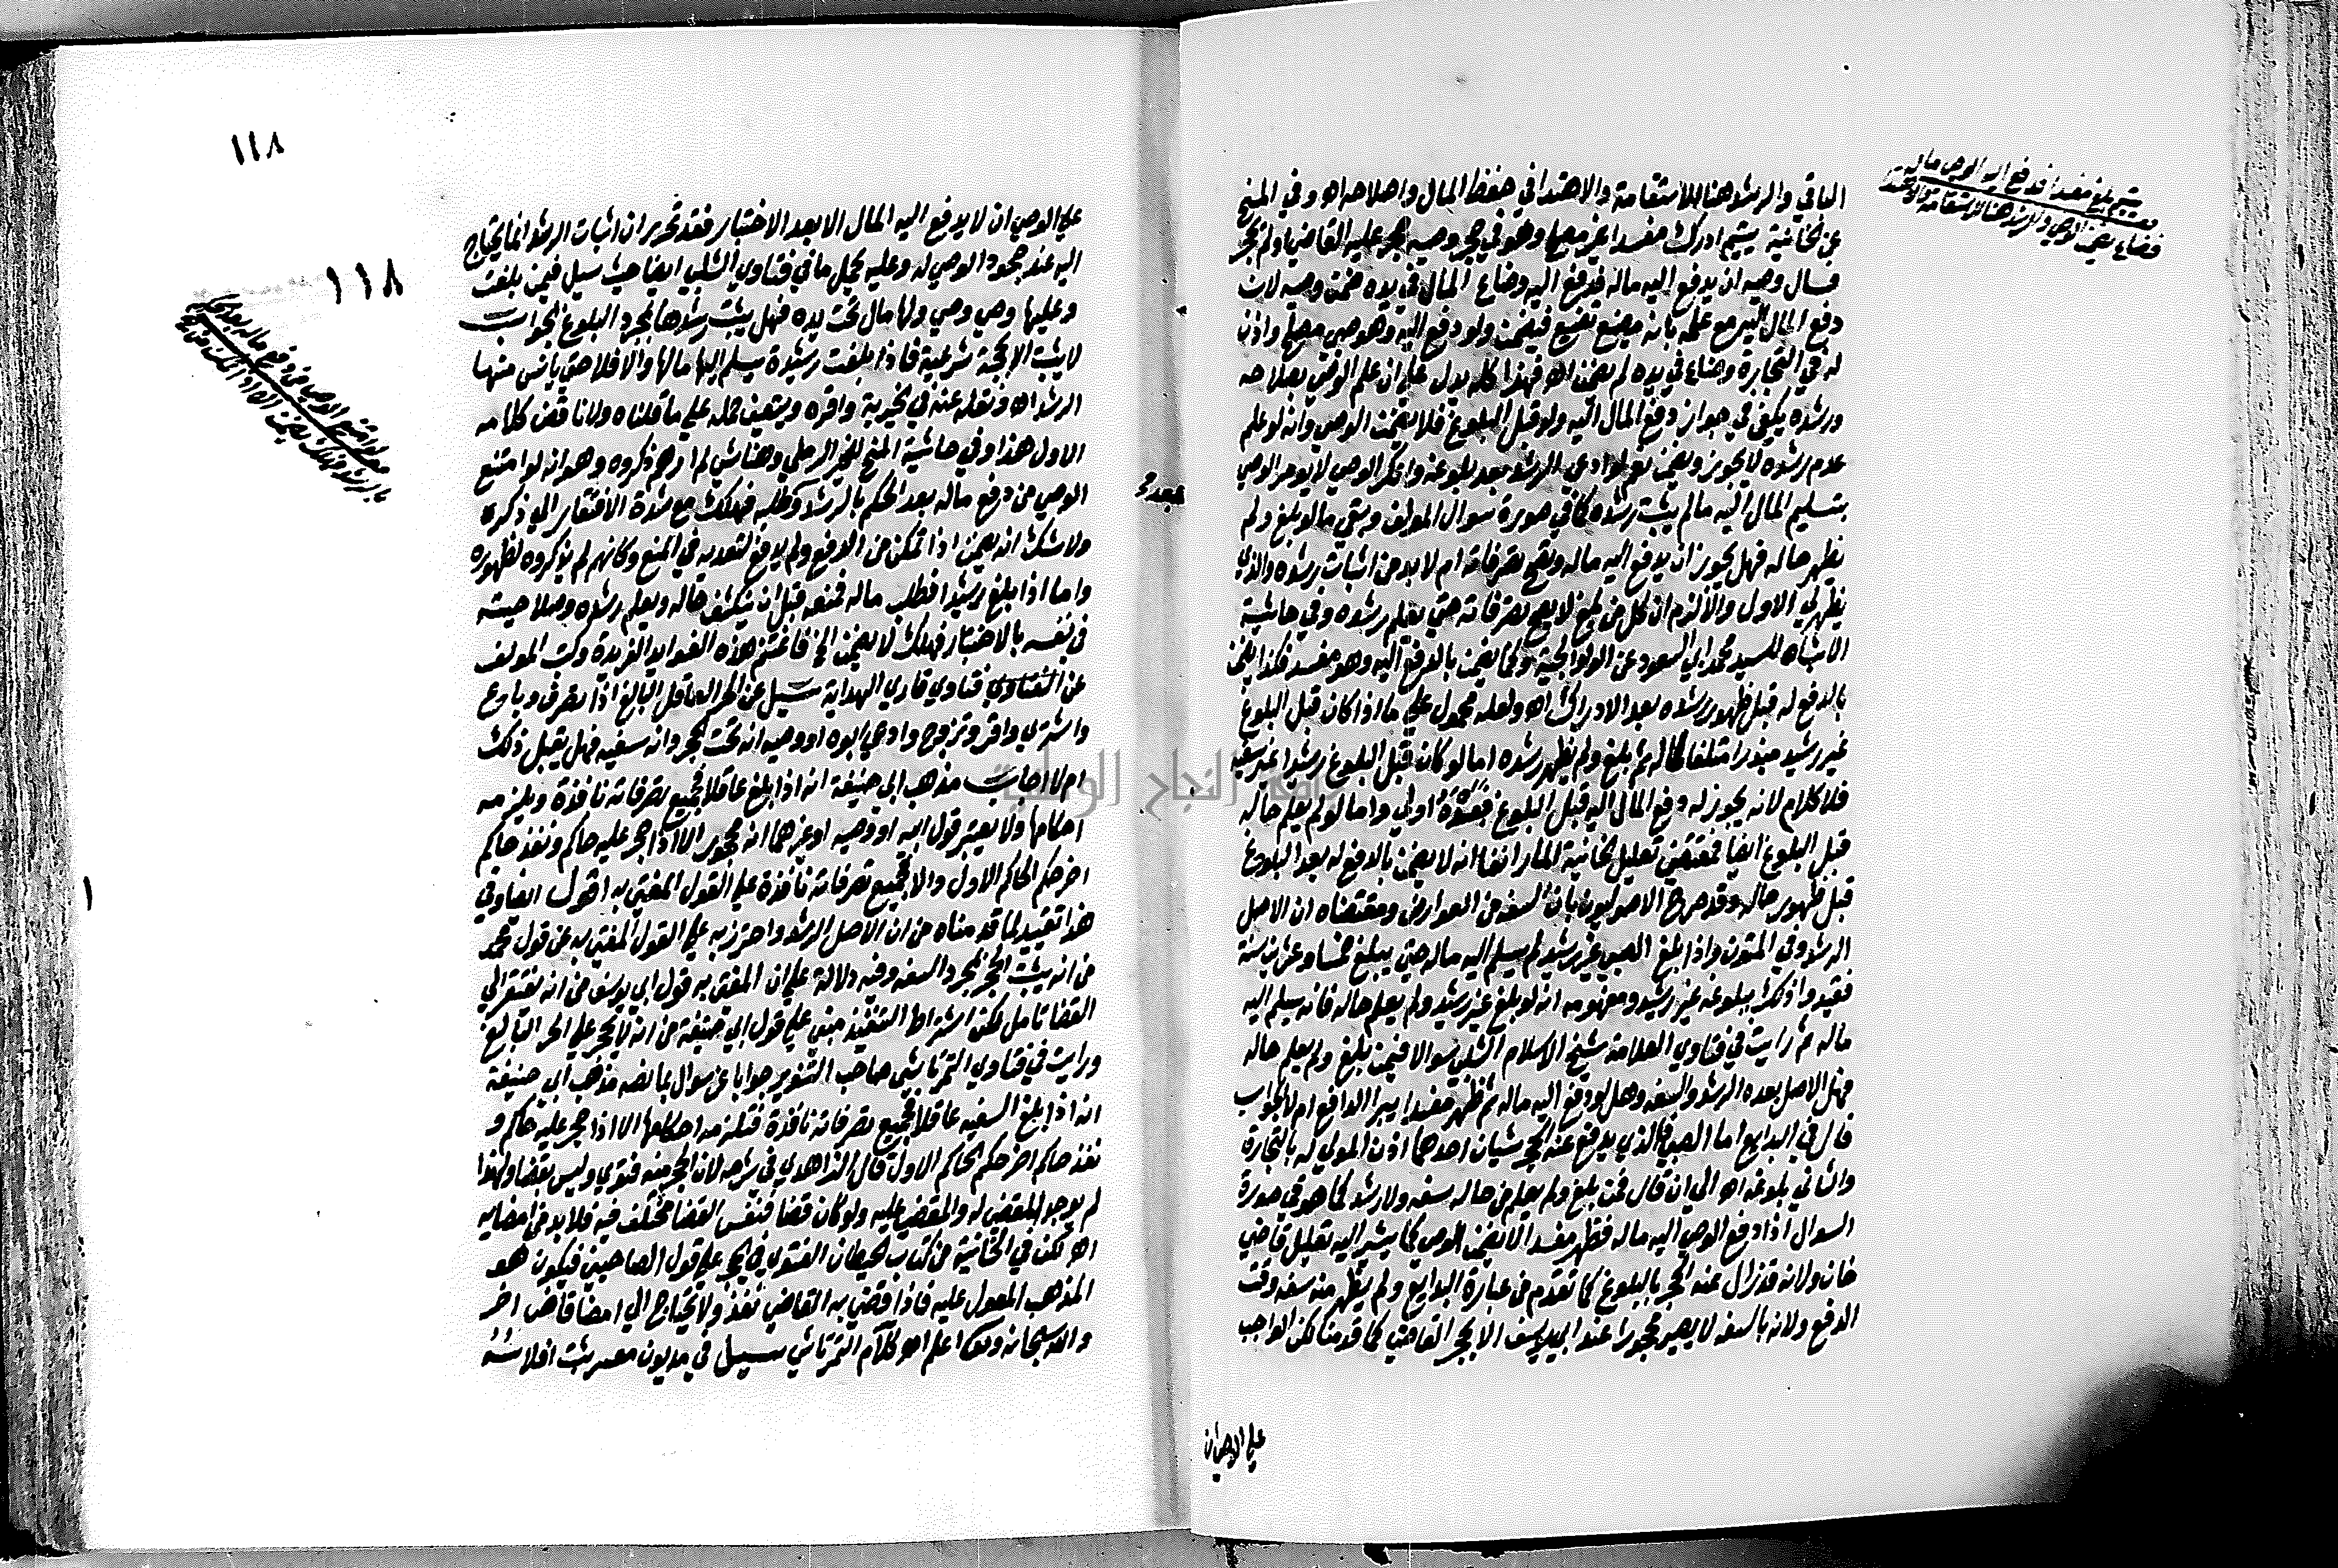 الباقي والرشد هنا الاستقامة والاهتداء في حفظ المال واصلاحه اهـ وفي المنح
عن الخانية يتيم ادرك مفسدا غير مصلح وهو في حجر وصيه حجر عليه القاضي اولم يحجر
فسال وصيه ان يدفع اليه ماله فدفع اليه وضاع المال في يده ضمن وصيه لان
دفع المال اليه مع علمه بانه مضيع تضييع فيضمن ولو دفع اليه وهو صبي مصلح واذن
له في التجارة وضاع في يده لم يضمن اهـ فهذا كله يدل على ان علم الوصي بصلاحه
ورشده يكفي في جواز دفع المال اليه ولو قبل البلوغ فلا يضمن الوصي وانه لو علم
عدم رشده لا يجوز ويضمن نعم لو ادعى الرشد بعد بلوغه وانكر الوصي لا يومر الوصي
بتسليم المال اليه مالم يثبت رشده كما في صورة سوال المولف وبقي ما لو بلغ ولم
يظهر حاله فهل يجوز ان يدفع اليه ماله وتصح تصرفاته ام لا بد من اثبات رشده والذي
يظهر لي الاول والا لزم ان كل من بلغ لا يصح تصرفاته حتى يعلم رشده وفي حاشية
الاشباه للسيد محمد ابي السعود عن الولوالجية وكما يضمن بالدفع اليه وهو مفسد فكذا يضمن
بالدفع له قبل ظهور رشده بعد الادراك اهـ ولعله محمول على ما اذا كان قبل البلوغ
غير رشيد مبذرا متلفا لماله ثم بلغ ولم يظهر رشده اما لو كان قبل البلوغ رشيدا غير سفيه
فلا كلام لانه يجوز له دفع المال اليه قبل البلوغ فبعده اولى واما لو لم يعلم حاله
قبل البلوغ ايضا فمقتضى تعليل الخانية المار انفا انه لا يضمن بالدفع له بعد البلوغ
قبل ظهور حاله وقد صرح الاصوليون بان السفه من العوارض ومقتضاه ان الاصل
الرشد وفي المتون واذا بلغ الصبي غير رشيد لم يسلم اليه ماله حتى يبلغ خمسا وعشرين سنة
فقيدوا ذلك ببلوغه غير رشيد ومفهومه انه لو بلغ غير رشيد ولم يعلم حاله فانه يسلم اليه
ماله ثم رايت في فتاوي العلامة شيخ الاسلام الشلبي سوالا فيمن بلغ ولم يعلم حاله
فهل الاصل بعده الرشد والسفه وهل لو دفع اليه ماله ثم ظهر مفسدا يبرا الدافع ام لا الجواب
قال في البدايع اما الصبي فالذي يرفع عنه الحجر شيان احدهما اذن المولي له بالتجارة
والثاني بلوغه اهـ الى ان قال فمن بلغ ولم يعلم من حاله سفه ولا رشد كما هو في صورة
السوال اذا دفع الوصي اليه ماله فظهر مفسدا لا يضمن الوصي كما يشير اليه تعليل قاضي
خان ولانه قد زال عنه الحجر بالبلوغ كما تقدم من عبارة البدايع ولم يظهر منه سفه وقت
الدفع ولانه بالسفه لا يصير محجورا عند ابي يوسف الا بحجر القاضي كما قدمنا لكن الواجب
على الوصي ان
يتيم بلغ مفسدا فدفع اليه الوصي ماله
فضاع يضمن الوصي والرشد هنا الاستقامة
١١٨
١١٨
على الوصي ان لا يدفع اليه المال الا بعد الاختبار فقد تحرر ان اثبات الرشد انما يحتاج
اليه عند جحود الوصي له وعليه يحمل ما في فتاوي الشلبي ايضا حيث سيل فيمن بلغت
وعليها وصي ولها مال تحت يده فهل يثبت رشدها بمجرد البلوغ الجواب
لا يثبت الا بحجة شرعية فاذا بلغت رشيدة يسلم اليها مالها والا فلا حتى يانس منها
الرشد اهـ ونقله عنه في الخيرية واقره ويتعين حمله على ما قلناه ولا ناقض كلامه
الاول هذا وفي حاشية المنح للخير الرملي وهنا شي لم ارهم ذكروه وهو انه لو امتنع
الوصي من دفع ماله بعد الحكم بالرشد وطلبه فهلك مع شدة الافتقار الى ذكره
ولا شك انه يضمن اذا تمكن من الدفع ولم يدفع لتعديه في المنع وكانهم لم يذكروه لظهوره
واما اذا بلغ رشيدا فطلب ماله فمنعه قبل ان ينكشف حاله ويعلم رشده وصلاحيته
في نفسه بالاختبار فهلك لا يضمن الخ فاغتنم هذه الفوايد الفريدة وكتب المولف
عن الفتاوي فتاوي قاري الهداية سيل عن الحر العاقل البالغ اذا تصرف وباع
واشترى واقر وتزوج وادعى ابوه او وصيه انه تحت حجره وانه سفيه فهل يقبل ذلك
ام لا اجاب مذهب ابي حنيفة انه اذا بلغ عاقلا فجميع تصرفاته نافذة ويلزمه
احكامها ولا يعتبر قول ابيه او وصيه او غيرهما انه محجور الا اذا حجر عليه حاكم ونفذ حاكم
اخر حكم الحاكم الاول والا فجميع تصرفاته نافذة على القول المفتى به اقول ايضا وفي
هذا تقييد لما قدمناه من ان الاصل الرشد واحترز به على القول المفتى به عن قول محمد
من انه يثبت الحجر بمجرد السفه وفيه دلالة على ان المفتى به قول ابي يوسف من انه يفتقر الى
القضا تامل لكن اشتراط التنفيذ مبني على قول ابي حنيفة من انه لا يحجر على الحر البالغ
ورايت في فتاوي التمرتاشي صاحب التنوير جوابا عن سوال بما نصه مذهب ابي حنيفة
انه اذا بلغ السفيه عاقلا فجميع تصرفاته نافذة فتلزمه احكامها الا اذا حجر عليه حاكم و
نفذ حاكم اخر حكم الحاكم الاول قال الزاهدي في شرحه لان الحجر منه فتوى وليس بقضا ولهذا
لم يوجد المقضي له والمقضي عليه ولو كان قضا فنفس القضا مختلف فيه فلا بد من امضايه
اهـ لكن في الخانية من كتاب الحيطان الفتوى في الحجر على قول الصاحبين فيكون هو
المذهب المعول عليه فاذا قضى به القاضي نفذ ولا يحتاج الى امضا قاض اخر
والله سبحانه وتعالى اعلم اهـ كلام التمرتاشي سيل في مديون معسر يثبت افلاسه
لو امتنع الوصي من دفع ماله بعد الحكم
بالرشد فهلك يضمن